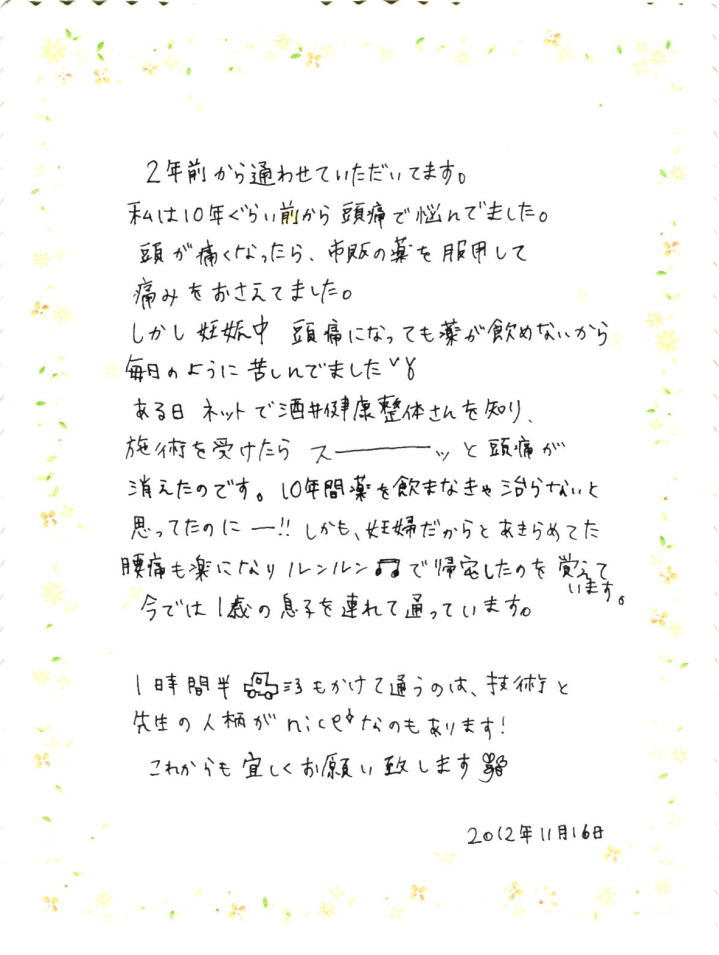 2年前から通わせていただいてます。
私は10年ぐらい前から頭痛で悩んでました。
頭が痛くなったら、市販の薬を服用して
痛みをおさえてました。
しかし妊娠中 頭痛になっても薬が飲めないから
毎日のように苦しんでました
ある日 ネットで酒井健康整体さんを知り、
施術を受けたら スーーーーッと頭痛が
消えたのです。10年間薬を飲まなきゃ治らないと
思ってたのにー!! しかも、妊婦だからとあきらめてた
腰痛も楽になり ルンルン♫で帰宅したのを覚えて
います。
今では1歳の息子を連れて通っています。
1時間半もかけて通うのは、技術と
先生の人柄がniceなのもあります!
これからも宜しくお願い致します
2012年11月16日